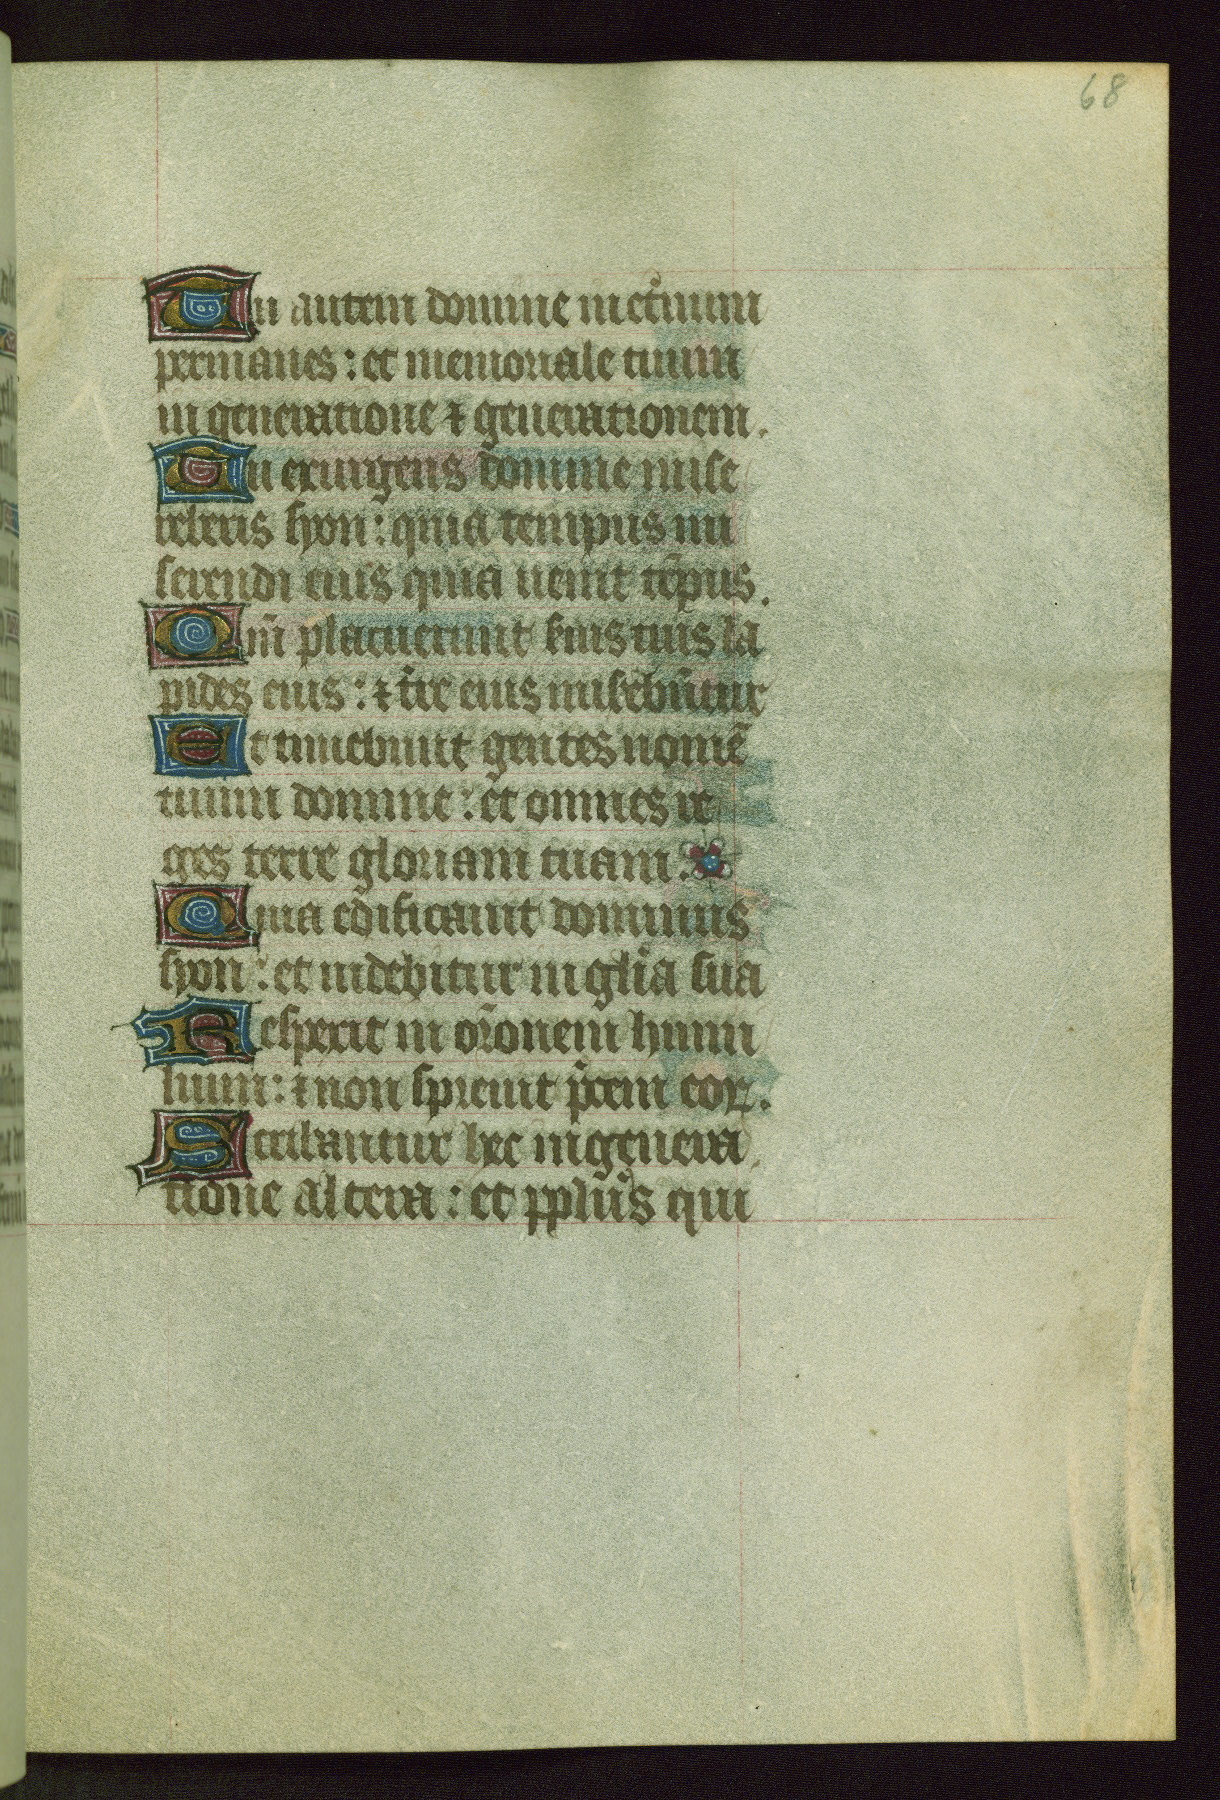 68
Tu autem domine in et̾num
permanes : et memoriale tuum
in generatione ⁊ generationem.
Tu exurgens domine mise
reberis syon : quia tempus mi
serendi eius quia uenit te̅pus.
Qm̅ placuerunt s̾uis tuis la
pides eius : ⁊ t̾re eius misereb̅utur
Et timebunt gentes nome̅
tuum domine : et omnes re
ges terre gloriam tuam.
Quia edificauit dominus
syon : et uidebitur in gl̅ia sua
Respexit in or̅onem humi
lium : ⁊ non spreuit p̅cem eoꝝ.
Scribantur hec in genera
tione altera : et ppl̅us qui